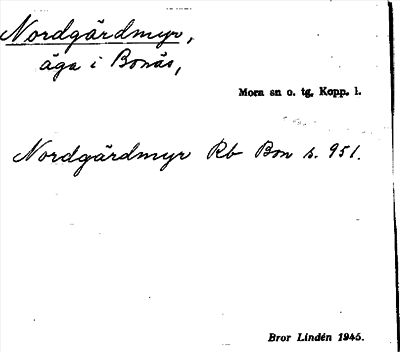 Nordgärdmyr,
äga i Bonäs,
Mora sn o. tg, Kopp. l.
Nordgärdmyr Rb Bon s. 951.
Bror Lindén 1945.